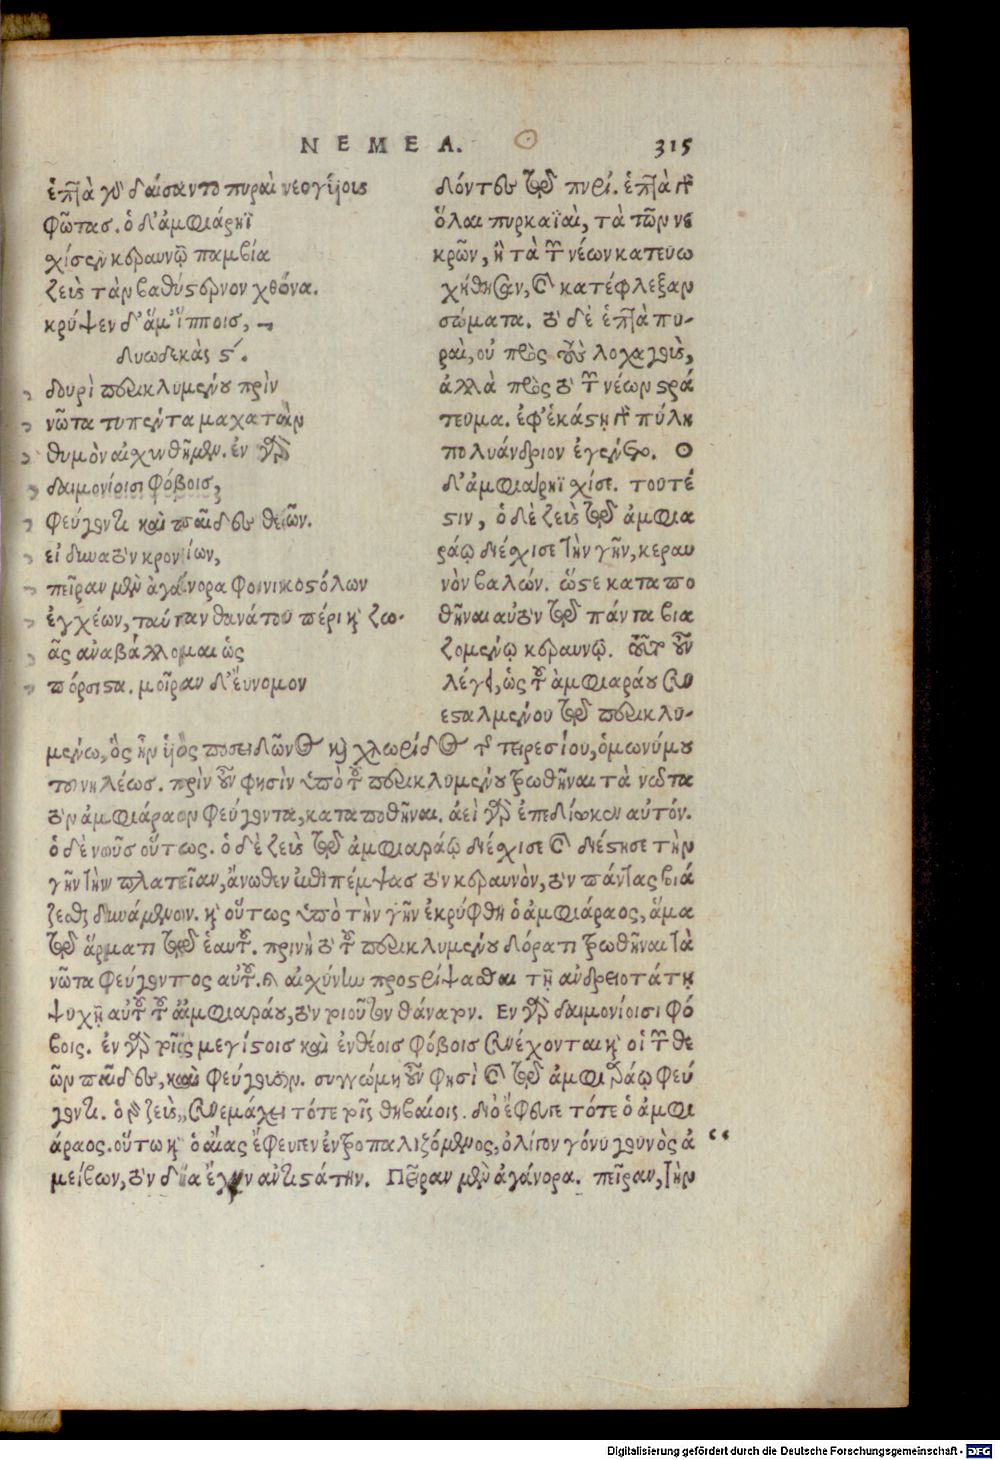 ΝΕΜΕΑ. 315
ἑπτὰ γὰρ δαίσαντο πυραὶ νεογήους
φῶτας. ὁ δ' ἀμφιάρηϊ
χίσεν κεραυνῷ παμβία
ζεὺς τὰν βαθύστερνον χθόνα.
κρύψεν δ' ἅμ' ἵπποις,
δυωδεκὰς ς΄.
δουρὶ περικλυμένου πρὶν
νῶτα τυπέντα μαχατὰν
θυμὸν αἰχυνθῆμεν. ἐν γὰρ
δαιμονίοισι φόβοις,
φεύγοντι καὶ παῖδες θεῶν.
εἰ δυνατὸν κρονίων,
πεῖραν μὲν ἀγάνορα φοινικοστόλων
ἐγχέων, ταύταν θανάτου πέρι καὶ ζω-
ᾶς ἀναβάλλομαι ὡς
πόρσιστα. μοῖραν δ' εὔνομον
δόντες τῷ πυρί. ἑπτὰ
ὅλαι πυρκαϊαὶ, τὰ τῶν νε
κρῶν, ἢ τὰ τῶν νέων κατευω
χήθησαν, καὶ κατέφλεξαν
σώματα. τὸ δὲ ἑπτὰ πυ-
ραὶ, οὐ πρὸς τοὺς λοχαγοὺς,
ἀλλὰ πρὸς τὸ τῶν νέων στρά
τευμα. ἐφ' ἑκάστῃ πύλῃ
πολυάνδριον ἐγένετο. Ο
δ' ἀμφιαρηϊ χίσε. τουτέ
στιν, ὁ δὲ ζεὺς τῷ ἀμφια
ράῳ διέχισε τὴν γῆν, κεραυ
νὸν βαλών. ὥστε καταπο
θῆναι αὐτὸν τῷ πάντα βια
ζομένῳ κεραυνῷ. οὖν
λέγει, ὡς τοῦ ἀμφιαράου συν
εσταλμένου τῷ περικλυ-
μένῳ, ὃς ἦν ὑὸς ποσειδῶνος καὶ χλωρίδος τῆς τειρεσίου, ὁμωνύμου
του νηλέως. πρὶν οὖν φησὶν ὑπὸ τοῦ περικλυμένου τρωθῆναι τὰ νῶτα
τὸν ἀμφιάραον φεύγοντα, καταποθῆναι. ἀεὶ γὰρ ἐπεδίωκεν αὐτόν.
ὁ δὲ νοῦς οὕτως. ὁ δὲ ζεὺς τῷ ἀμφιαράῳ διέχισε καὶ διέστησε τὴν
γῆν τὴν πλατεῖαν, ἄνωθεν ἐπιπέμψας τὸν κεραυνὸν, τὸν πάντας βιά
ζεσθαι δυνάμενον. καὶ οὕτως ὑπὸ τὴν γῆν ἐκρύφθη ὁ ἀμφιάραος, ἅμα
τῷ ἅρματι τῷ ἑαυτοῦ. πρινὴ τὸ τοῦ περικλυμένου δόρατι τρωθῆναι τὰ
νῶτα φεύγοντος αὐτοῦ. καὶ αἰχύνην προστρίψασθαι τῇ ἀνδρειοτάτῃ
ψυχῇ αὐτοῦ τοῦ ἀμφιαράου, τὸν τοιοῦτον θάνατον. Εν γὰρ δαιμονίοισι φό
βοις. ἐν γὰρ τοῖς μεγίστοις καὶ ἐνθέοις φόβοις συνέχονται καὶ οἱ τῶν θε
ῶν παῖδες, καὶ φεύγουσιν. συγγώμη οὖν φησὶ καὶ τῷ ἀμφιαράῳ φεύ
γοντι. ὁ γὰρ ζεὺς συνεμάχει τότε τοῖς θηβαίοις. διὸ ἔφευγε τότε ὁ ἀμφι
άραος. οὕτω καὶ ὁ αἴας ἔφευγεν ἐντροπαλιζόμενος, ὀλίγον γόνυ γουνὸς ἀ
μείβων, τὸν δία ἔχων ἀντιστάτην. Πεῖραν μὲν ἀγάνορα. πεῖραν, τὴν
Digitalisierung gefördert durch die Deutsche Forschungsgemeinschaft - DFG